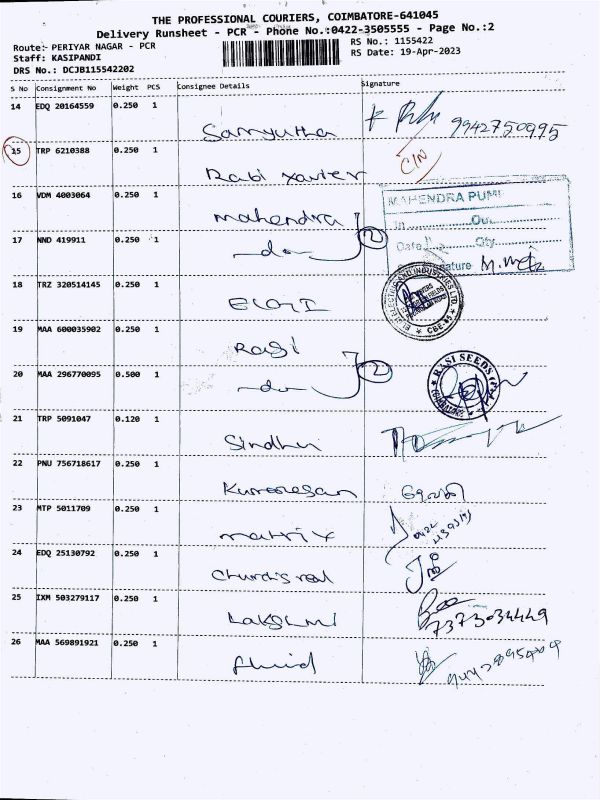 THE PROFESSIONAL COURIERS, COIMBATORE-641045
Delivery Runsheet - PCR - Phone No.:0422-3505555 - Page No.:2
Route:- PERIYAR NAGAR - PCR
RS No.: 1155422
Staff: KASIPANDI
RS Date: 19-Apr-2023
DRS No.: DCJB115542202
S No Consignment No Weight PCS Consignee Details Signature
14 EDQ 20164559 0.250 1
Samyutha 9942750995
15 TRP 6210388 0.250 1
Rabi xavier C/N
16 VDM 4003064 0.250 1
Mahendra
MAHENDRA PUMP
In Out
Date Qty
Signature
17 NND 419911 0.250 1
-do- 2
18 TRZ 320514145 0.250 1
ELGI
INDUSTRIES LTD. CBE-45
19 MAA 600035902 0.250 1
Rasi
20 MAA 296770095 0.500 1
-do- 2
RASI SEEDS COIMBATORE
21 TRP 5091047 0.120 1
Sindhu
22 PNU 756718617 0.250 1
Kumaresan
23 MTP 5011709 0.250 1
matrix
24 EDQ 25130792 0.250 1
25 IXM 503279117 0.250 1
Lakshmi 7373034449
26 MAA 569891921 0.250 1
fluid